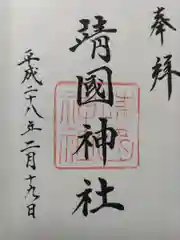 奉拝
靖國神社
平成二十八年二月十九日